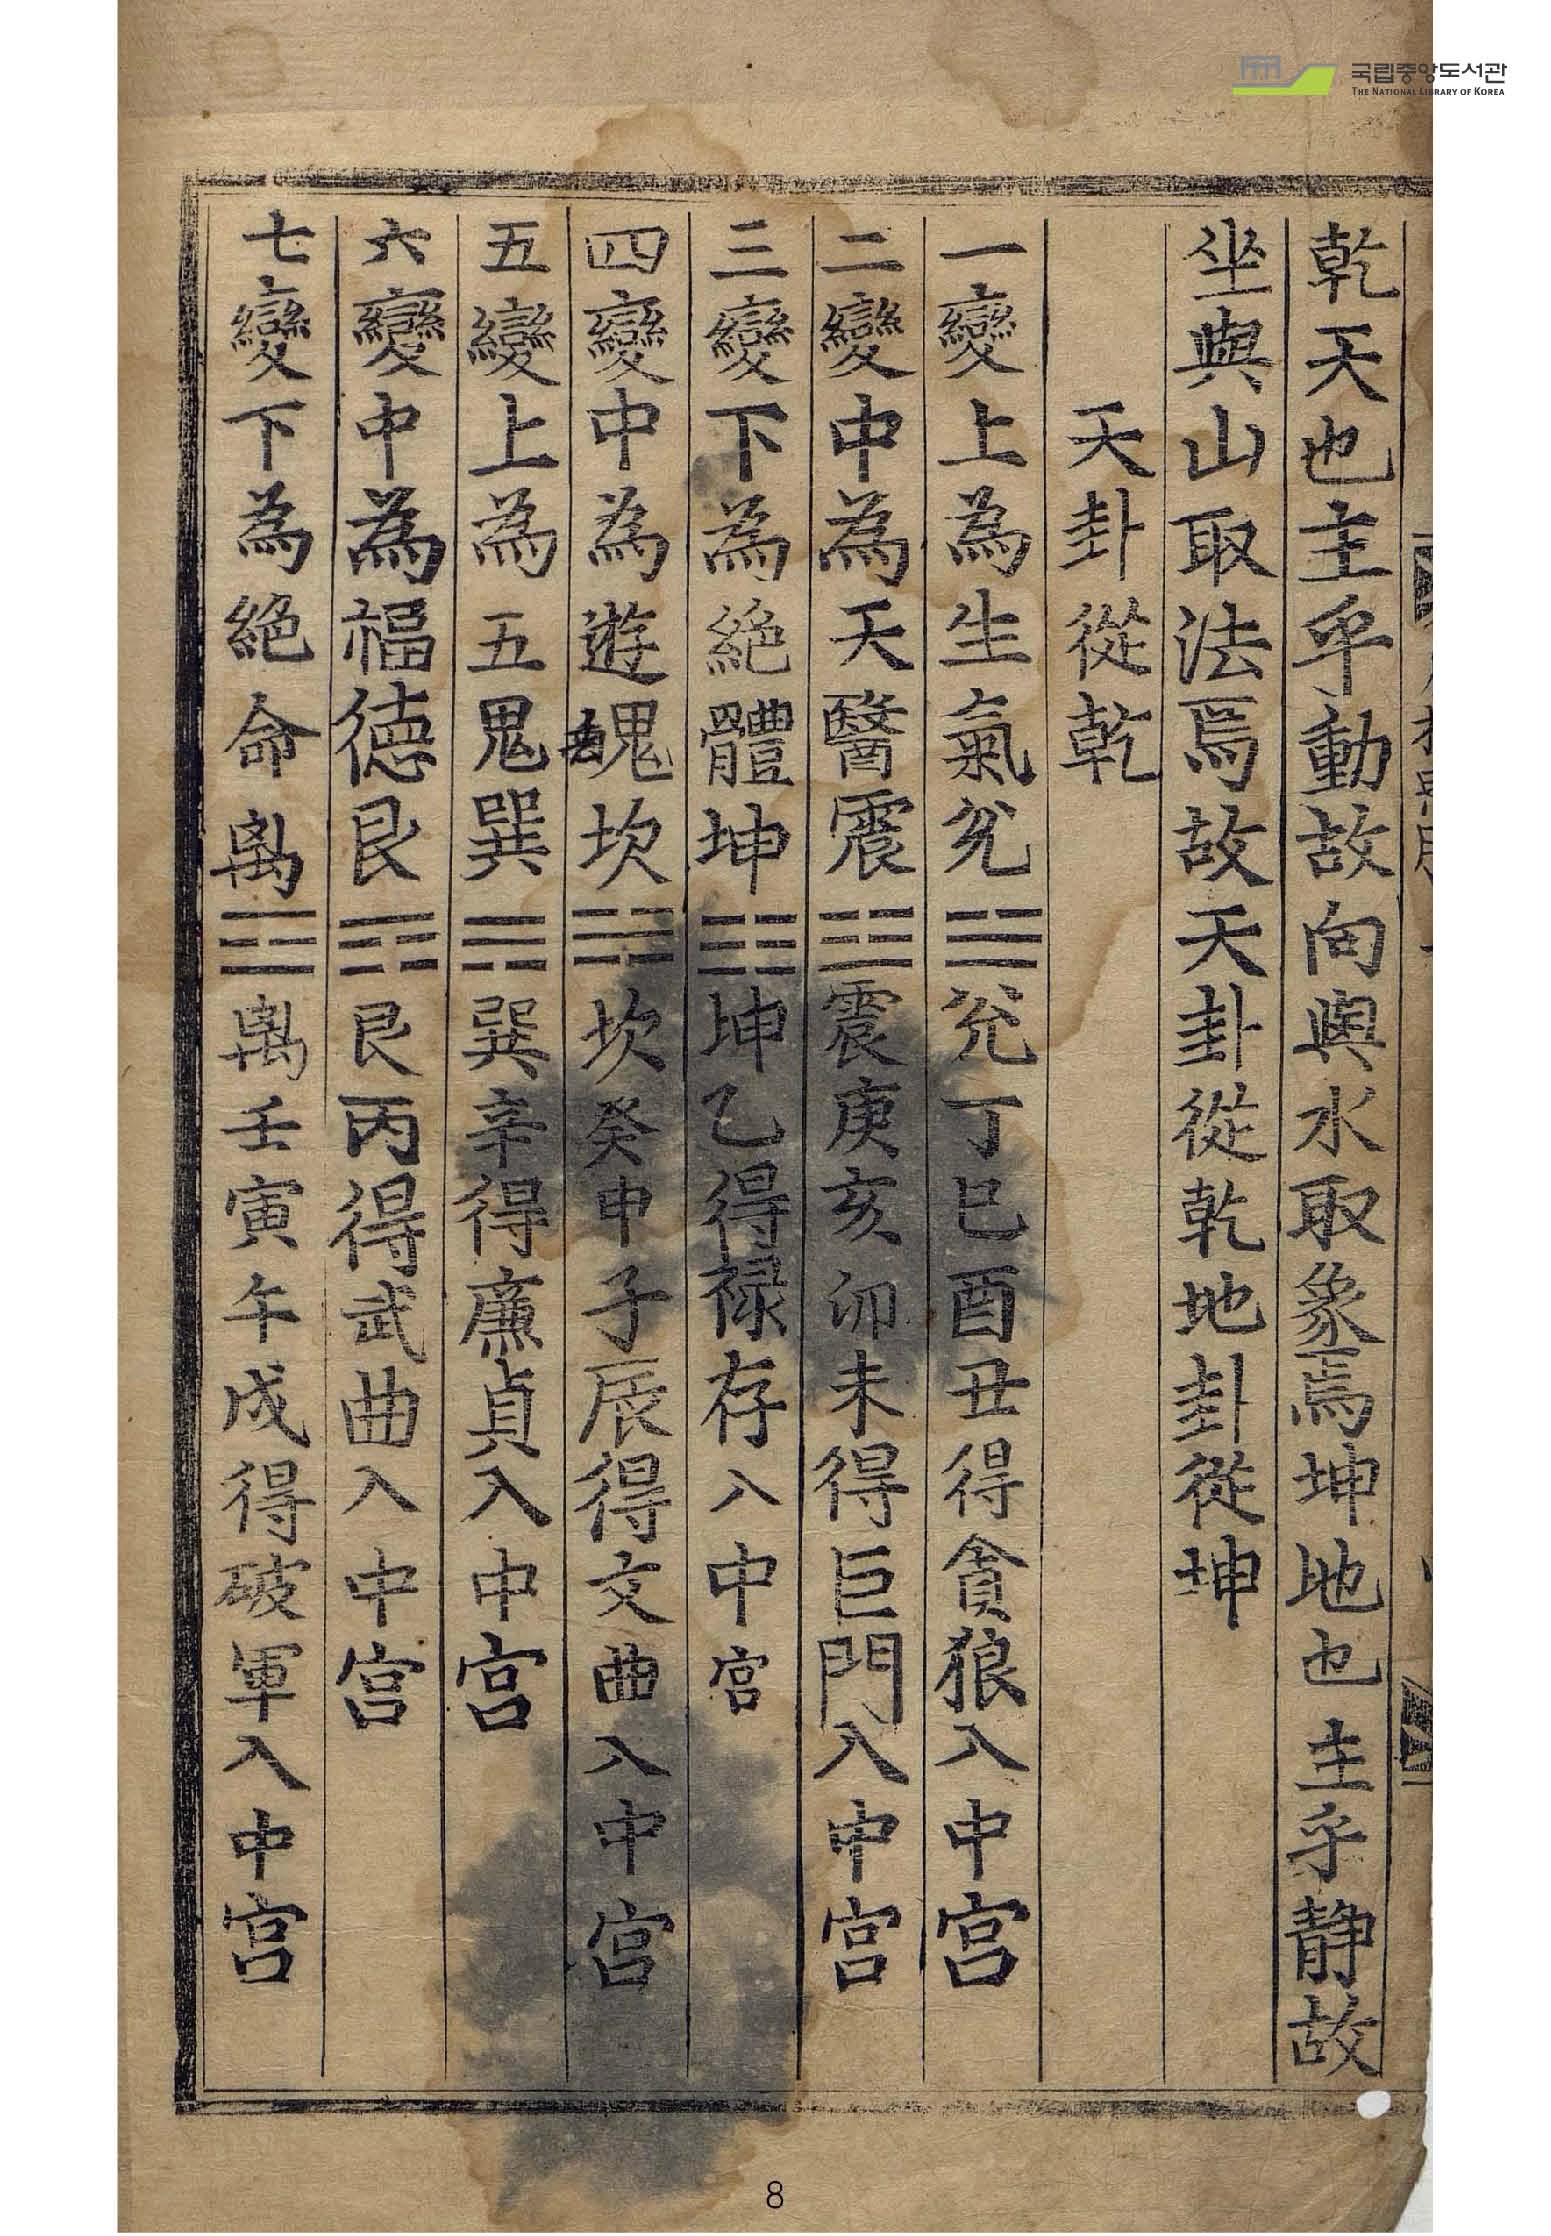 국립중앙도서관
THE NATIONAL LIBRARY OF KOREA
乾天也主乎動故向與水取象焉坤地也主乎静故
坐與山取法焉故天卦從乾地卦從坤
天卦從乾
一變上為生氣兊☱兊丁巳酉丑得貪狼入中宮
二變中為天醫震☳震庚亥卯未得巨門入中宮
三變下為絶體坤☷坤乙得禄存入中宮
四變中為遊魂坎☵坎癸申子辰得文曲入中宮
五變上為五鬼巽☴巽辛得廉貞入中宮
六變中為福德艮☶艮丙得武曲入中宮
七變下為絶命离☲离壬寅午戌得破軍入中宮
8